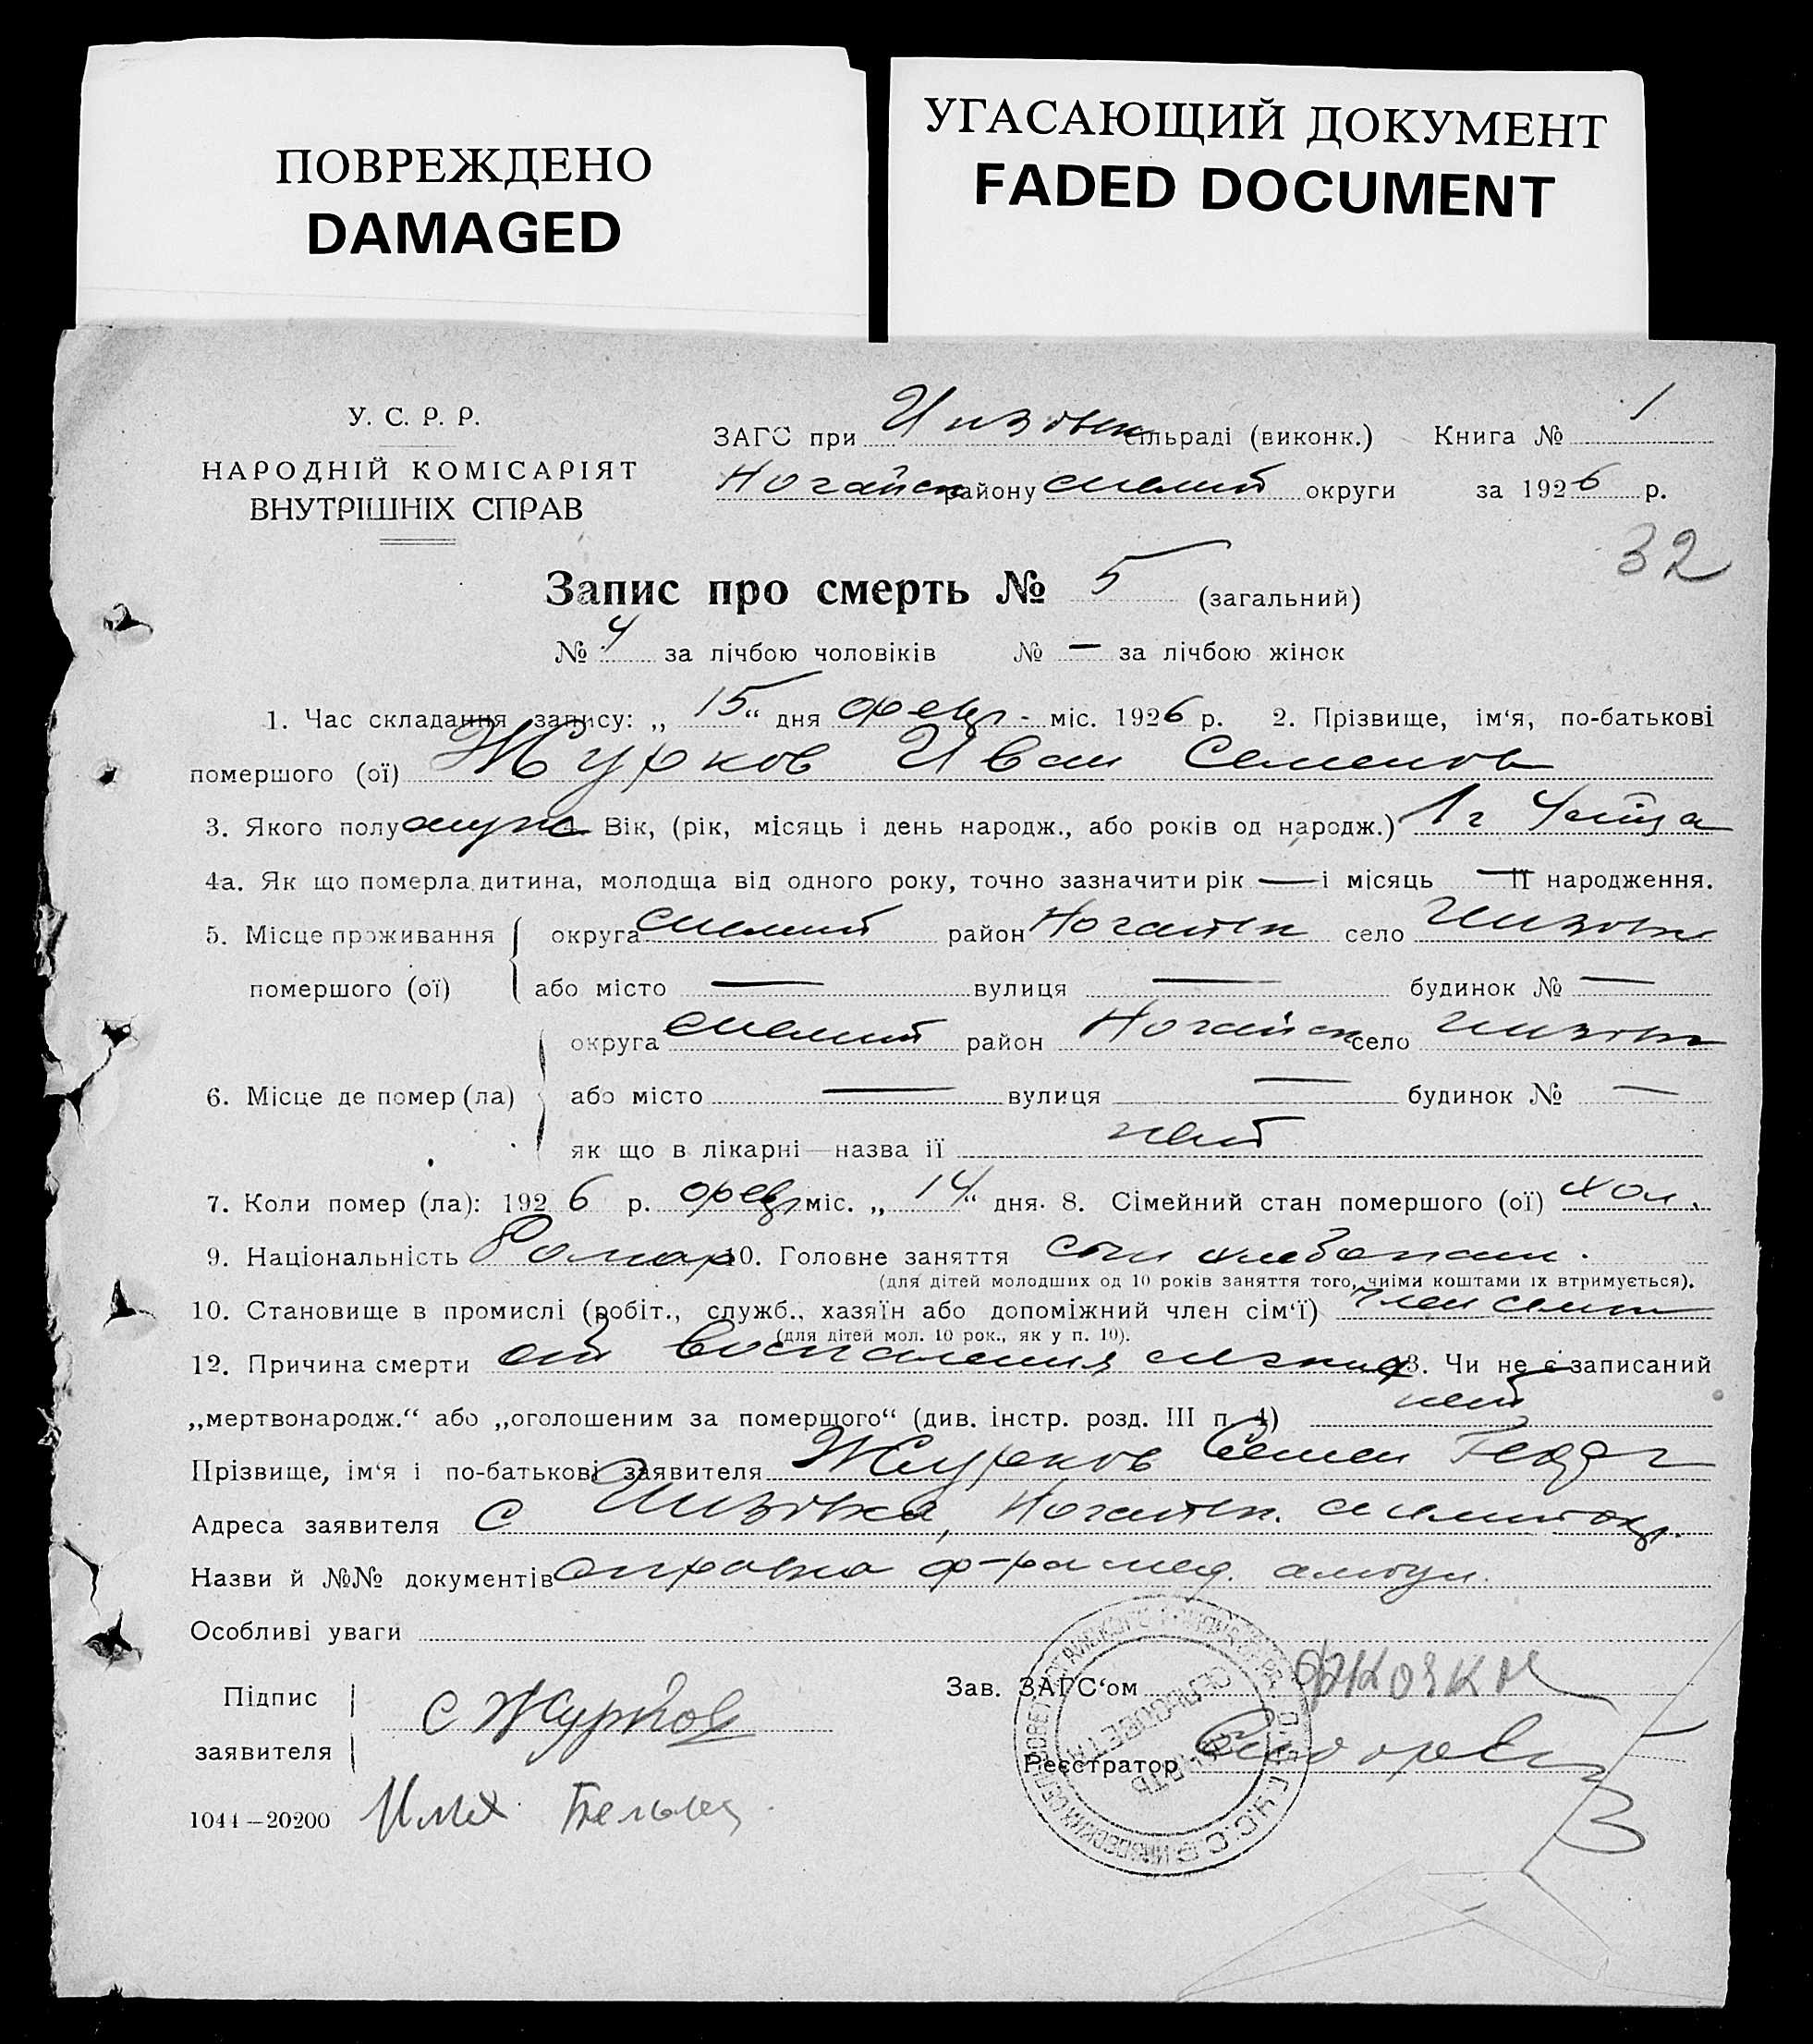 ПОВРЕЖДЕНО
DAMAGED
УГАСАЮЩИЙ ДОКУМЕНТ
FADED DOCUMENT
У. С. Р. Р.
НАРОДНІЙ КОМІСАРІЯТ
ВНУТРІШНІХ СПРАВ
ЗАГС при Инзовск сільраді (виконк.) Книга № 1
Ногайск району округи за 1926 р.
32
Запис про смерть № 5 (загальний)
№ 4 за лічбою чоловіків № — за лічбою жінок
1. Час складання запису: „ 15 “ дня февр - міс. 1926 р. 2. Прізвище, ім‘я, по-батькові
помершого (ої) Журков Иван Семенов
3. Якого полу муж 4. Вік, (рік, місяць і день народж., або років од народж.) 1 г 4
4а. Як що померла дитина, молодща від одного року, точно зазначити рік — і місяць — її народження.
5. Місце проживання округа район Ногайск село Инзовка
помершого (ої) або місто — вулиця — будинок № —
округа район Ногайск село Инзовка
6. Місце де помер (ла) або місто — вулиця — будинок № —
як що в лікарні—назва її нет
7. Коли помер (ла): 1926 р. февр міс. „ 14 “ дня. 8. Сімейний стан помершого (ої) хол.
9. Національність 10. Головне заняття сын хлебопаш.
(для дітей молодших од 10 років заняття того, чиїми коштами їх втримується).
10. Становище в промислі (робіт., служб., хазяїн або допоміжний член сім‘ї) член семьи
(для дітей мол. 10 рок., як у п. 10).
12. Причина смерти от воспаления легких 13. Чи не є записаний
„мертвонародж.“ або „оголошеним за померщого“ (див. інстр. розд. III п. 4) нет
Прізвище, ім‘я і по-батькові заявителя Журков Семен
Адреса заявителя с Инзовка, Ногайск.
Назви й №№ документів справка амбул.
Особливі уваги
Підпис
заявителя
С Журков
Зав. ЗАГС‘ом
Реєстратор
1044—20200